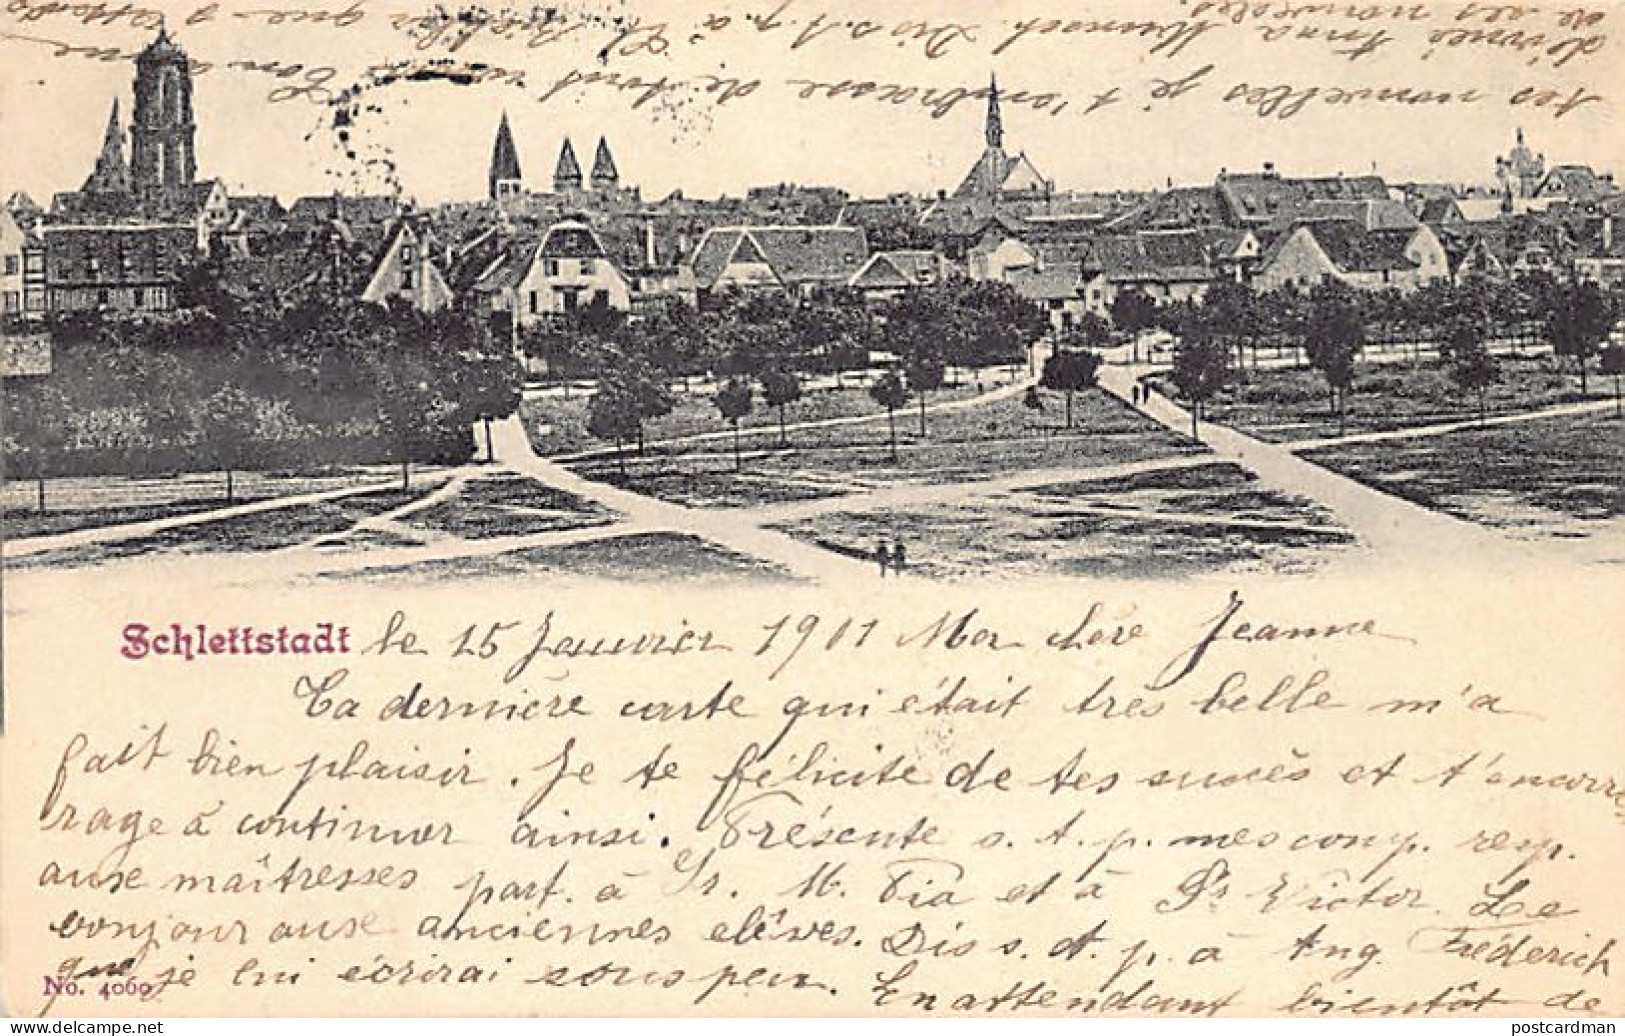 Schlettstadt le 15 Janvier 1901 Ma chère Jeanne
Ta dernière carte qui était très belle m'a
fait bien plaisir. Je te félicite de tes succès et t'encour
rage à continuer ainsi. Présente s. t. p. mes comp. resp.
aux maîtresses part. à Sr. M. Pia et à Sr Victor. Le
bonjour aux anciennes elèves. Dis s. t. p. à Ang. Fréderich
que je lui écrirai sous peu. En attendant bientôt de
tes nouvelles je t'embrasse de tout
Ton
Dis s. t. p. à
Anna
de ses nouvelles.
No. 4060
postcardman